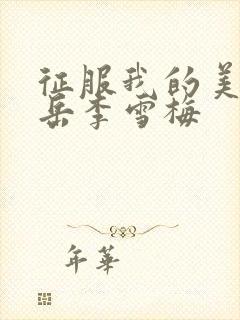 征服我的美
岳李雪梅
年華